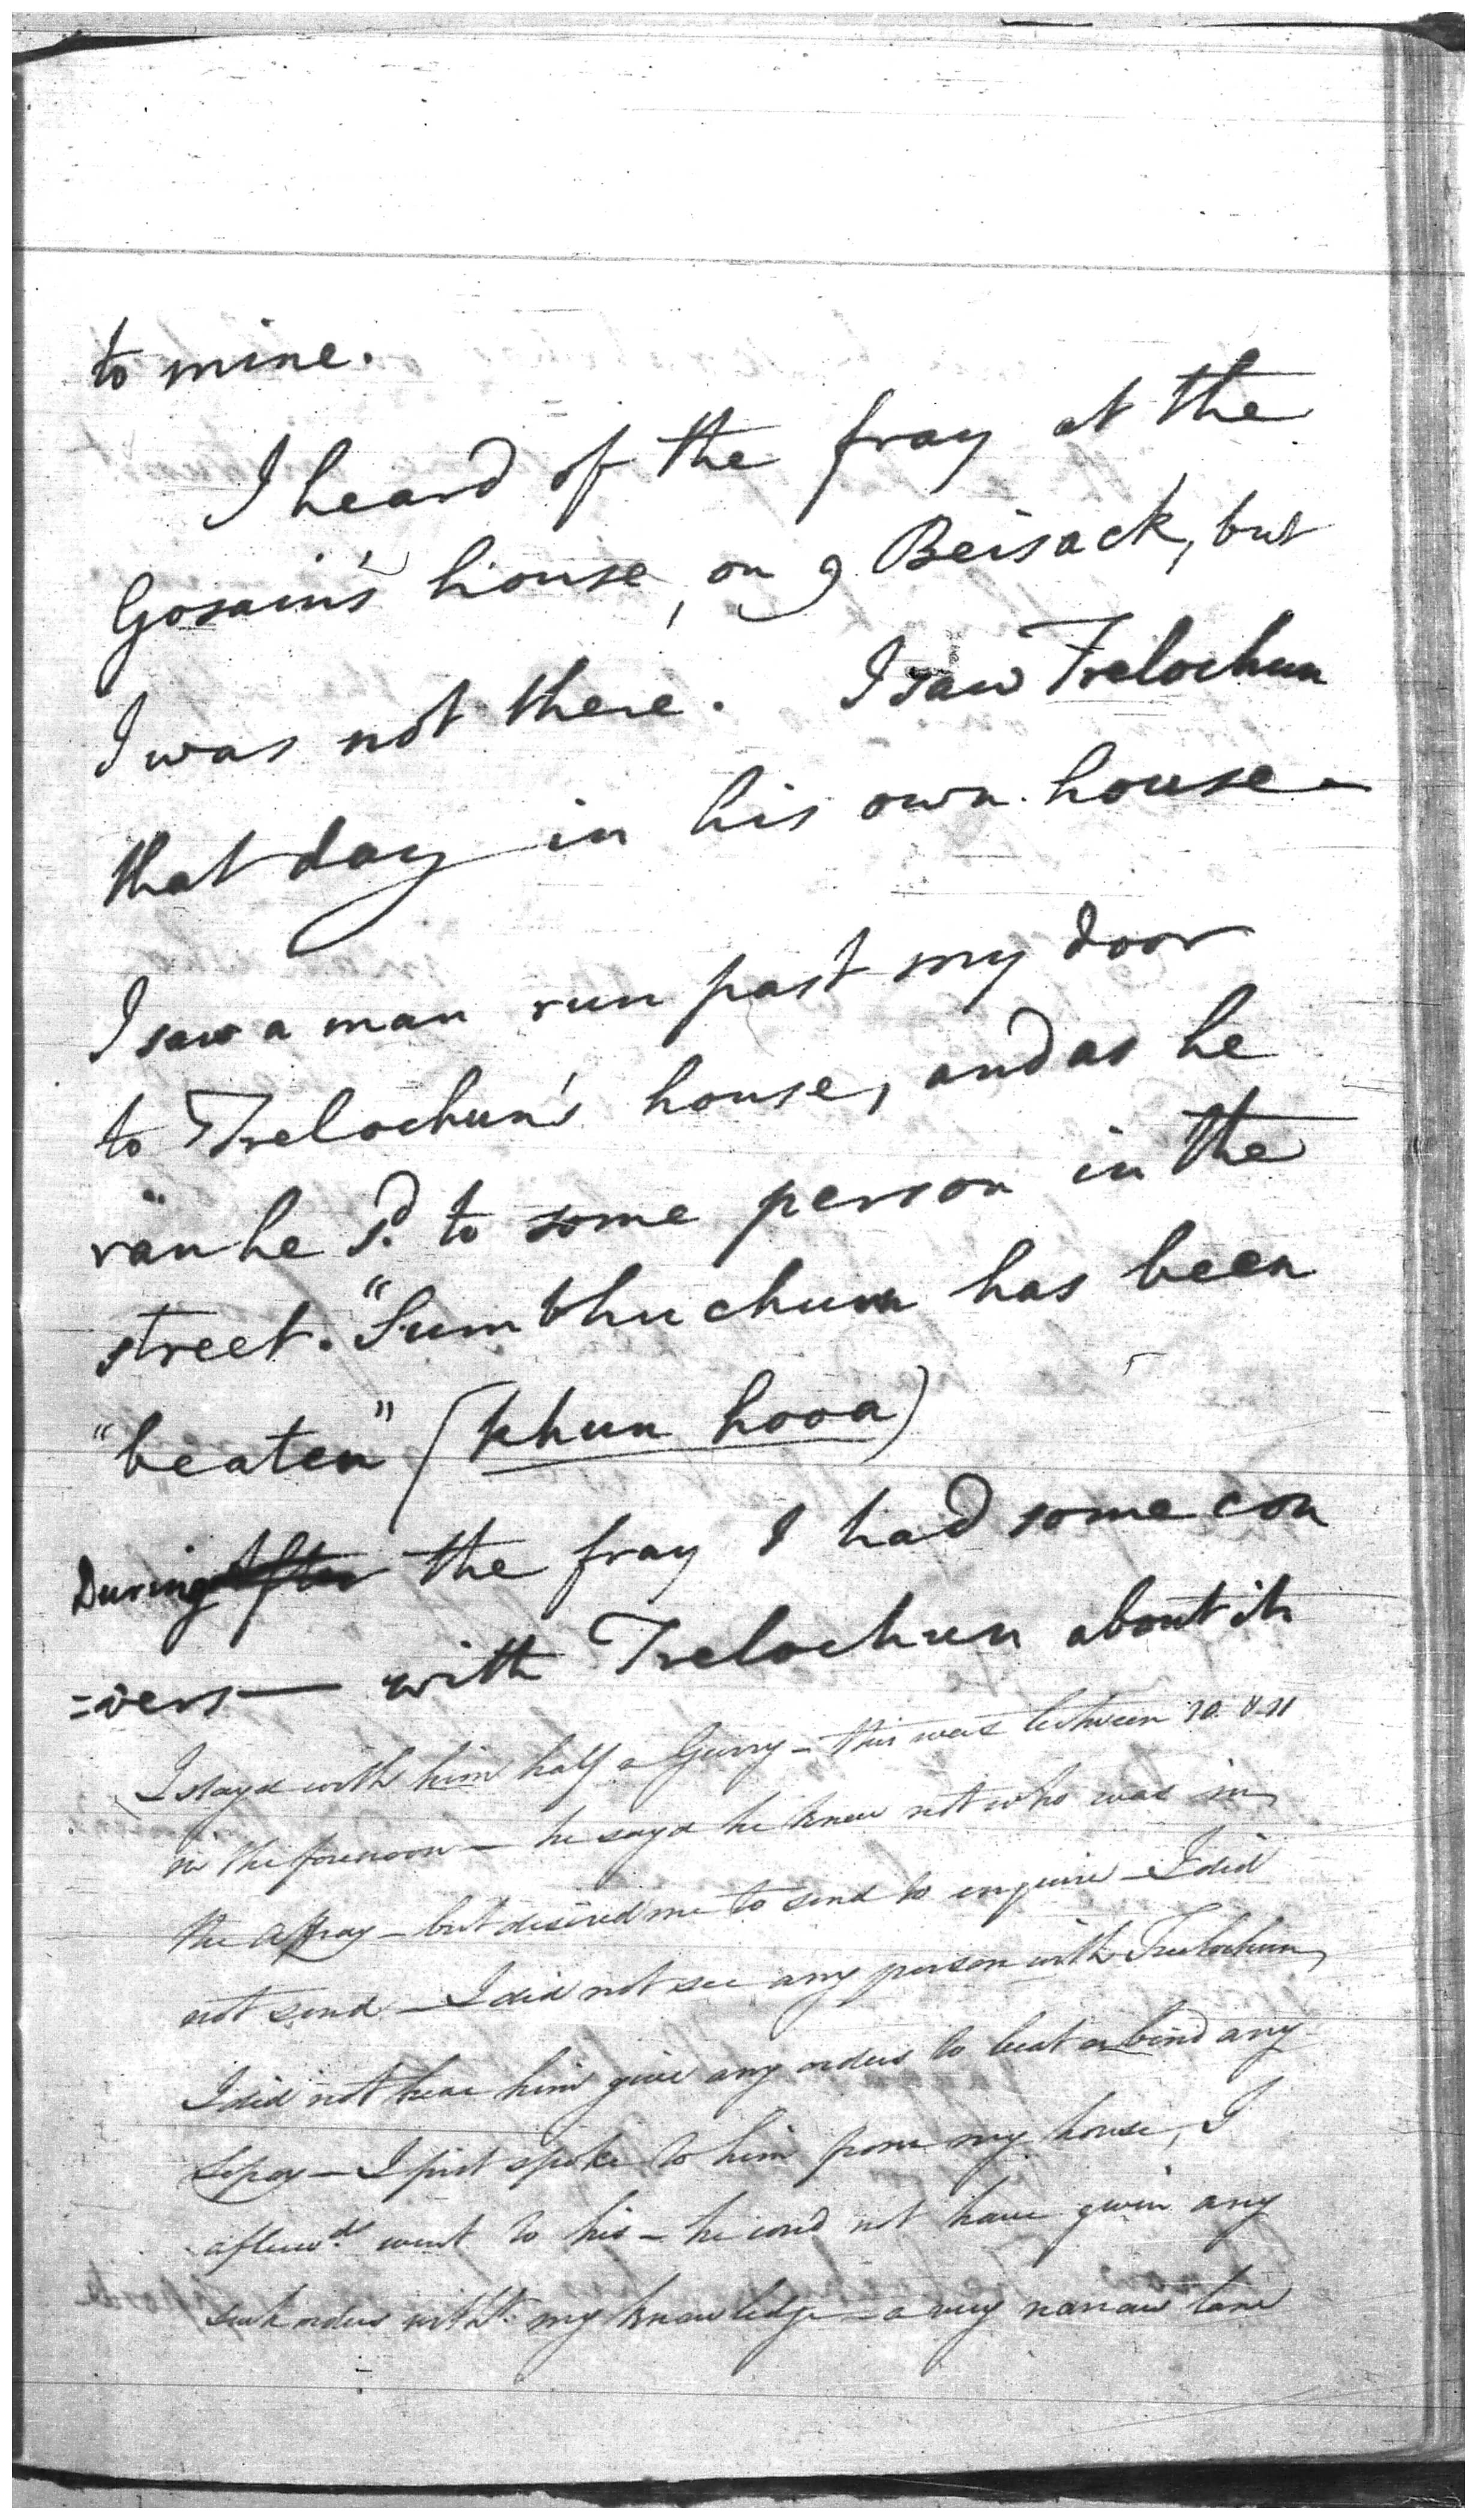 to mine.
I heard of the fray at the
Gosain's house, on 9 Beisack, but
I was not there. I saw Trelochun
that day in his own house -
I saw a man run past my door
to Trelochun's house, and as he
ran he sd. to some person in the
street. "Sumbhuchum has been
"beaten" (khun hooa)
During After the fray I had some con
=vers— with Trelochun about it
I stayd with him half a Gurry - this was between 10 & 11
in the forenoon - he sayd he knew not who was in
the affray - but desired me to send to enquire - I did
not send - I did not see any person with Trelochun
I did not hear him give any orders to beat or bind any
Sepoy - I first spoke to him from my house, I
afterwds. went to his - he coud not have given any
such orders witht. my knowledge - a very narrow lane